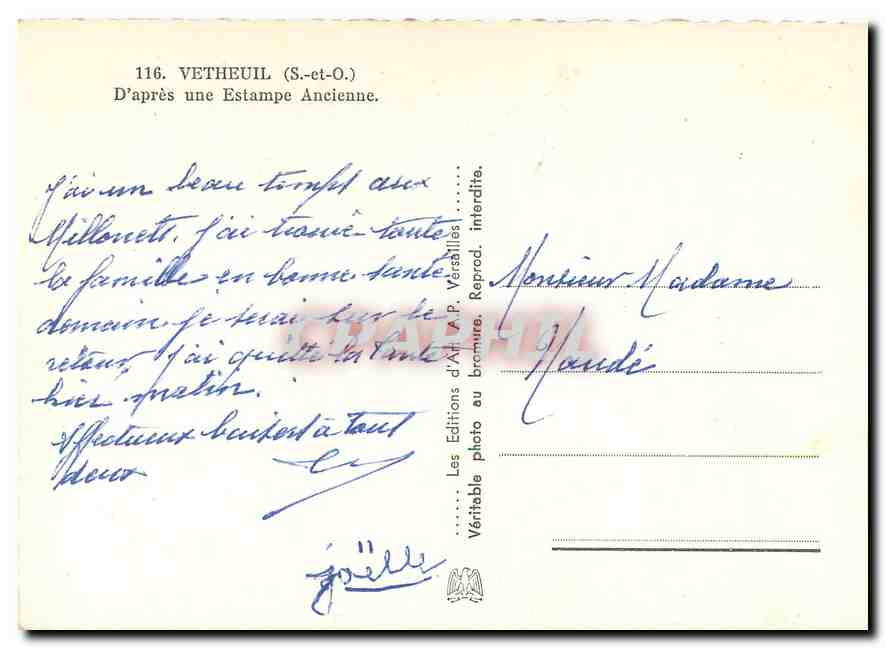 116. VETHEUIL (S.-et-O.)
D'après une Estampe Ancienne.
J'ai un beau temps aux
Millonets. J'ai trouvé toute
la famille en bonne santé
domain je serai sur le
retour j'ai quitté la
hier matin.
Affectueux baisers à tout
deux
joëlle
Monsieur Madame
Naudé
...... Les Editions d'Art A.P. Versailles ......
Véritable photo au bromure. Reprod. interdite.